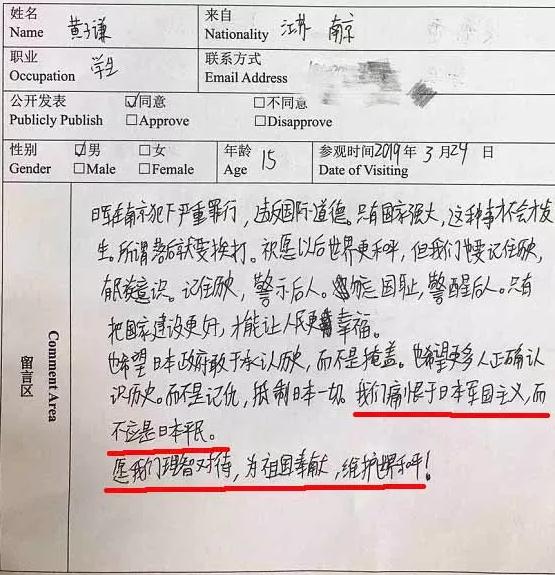 姓名 黄子谦 来自 江苏 南京
Name Nationality
职业 学生 联系方式
Occupation Email Address
公开发表 ☑同意 □不同意
Publicly Publish □Approve □Disapprove
性别 ☑男 □女 年龄 15 参观时间2019年3月24日
Gender □Male □Female Age Date of Visiting
留言区 Comment Area
日军在南京犯下严重罪行，违反国际道德。只有国家强大，这种事才不会发
生。所谓落后就要挨打。祝愿以后世界更和平，但我们也要记住历史，
有民族意识。记住历史，警示后人。勿忘国耻，警醒后人。只有
把国家建设更好，才能让人民更幸福。
也希望日本政府敢于承认历史，而不是掩盖。也希望更多人正确认
识历史。而不是记仇，抵制日本一切。我们痛恨于日本军国主义，而
不应是日本平民。
愿我们理智对待，为祖国奉献，维护世界和平！